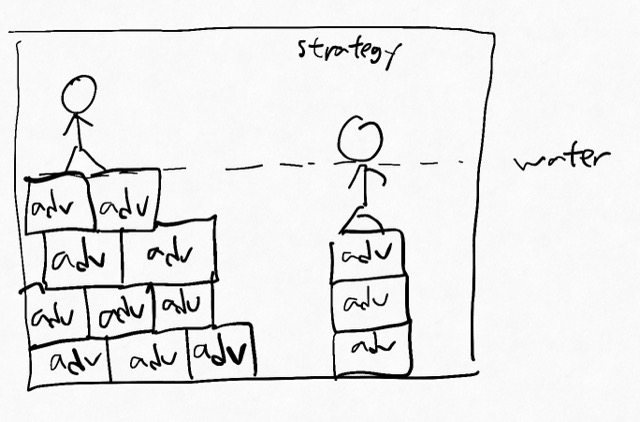 strategy
water
adv adv
adv adv
adv
adv adv adv
adv
adv adv adv
adv